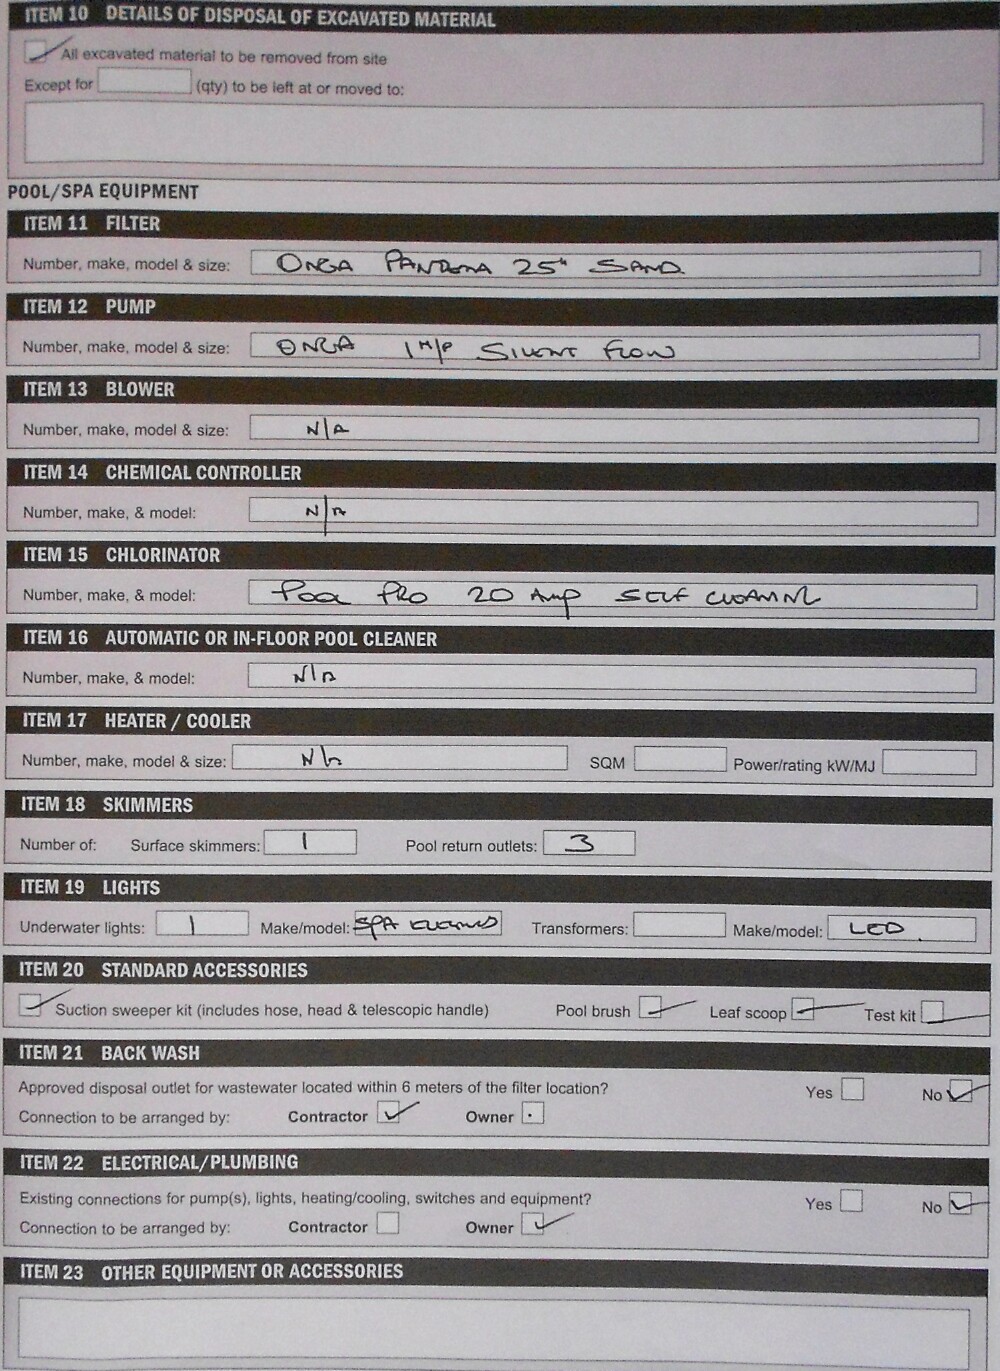 ITEM 10 DETAILS OF DISPOSAL OF EXCAVATED MATERIAL
All excavated material to be removed from site
Except for (qty) to be left at or moved to:
POOL/SPA EQUIPMENT
ITEM 11 FILTER
Number, make, model & size: ONGA PANTERA 25" SAND.
ITEM 12 PUMP
Number, make, model & size: ONGA 1 H/P SILENT FLOW
ITEM 13 BLOWER
Number, make, model & size: N/A
ITEM 14 CHEMICAL CONTROLLER
Number, make, & model: N/A
ITEM 15 CHLORINATOR
Number, make, & model: POOL PRO 20 AMP SELF CLEANING
ITEM 16 AUTOMATIC OR IN-FLOOR POOL CLEANER
Number, make, & model: N/A
ITEM 17 HEATER / COOLER
Number, make, model & size: N/A SQM Power/rating kW/MJ
ITEM 18 SKIMMERS
Number of: Surface skimmers: 1 Pool return outlets: 3
ITEM 19 LIGHTS
Underwater lights: 1 Make/model: SPA Transformers: Make/model: LED.
ITEM 20 STANDARD ACCESSORIES
Suction sweeper kit (includes hose, head & telescopic handle) Pool brush Leaf scoop Test kit
ITEM 21 BACK WASH
Approved disposal outlet for wastewater located within 6 meters of the filter location? Yes No
Connection to be arranged by: Contractor Owner
ITEM 22 ELECTRICAL/PLUMBING
Existing connections for pump(s), lights, heating/cooling, switches and equipment? Yes No
Connection to be arranged by: Contractor Owner
ITEM 23 OTHER EQUIPMENT OR ACCESSORIES